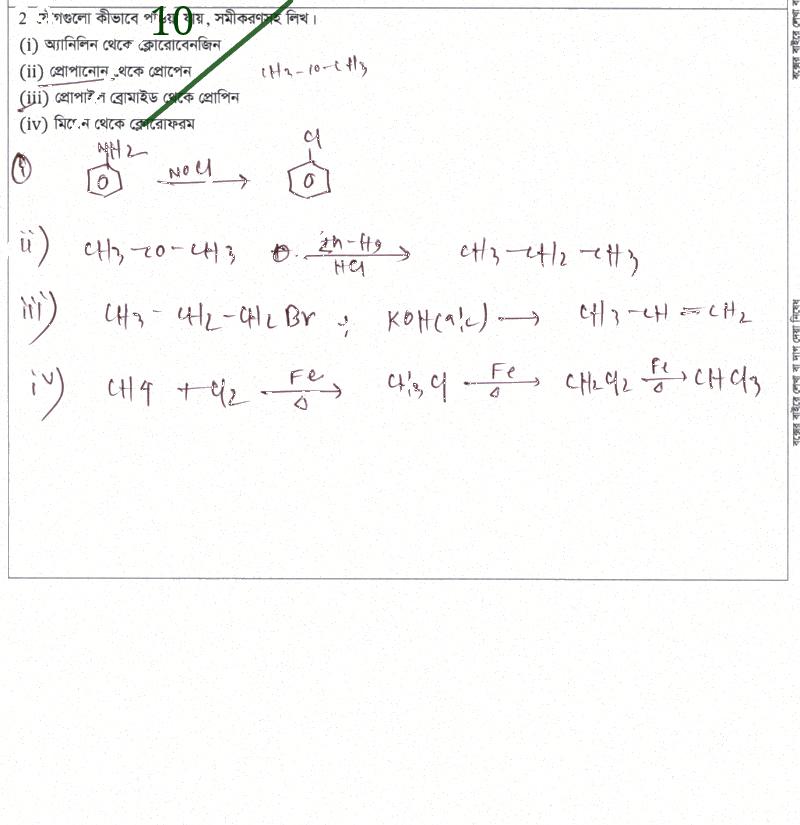 10
2 যৌগগুলো কীভাবে পাওয়া যায়, সমীকরণসহ লিখ।
(i) অ্যানিলিন থেকে ক্লোরোবেনজিন
(ii) প্রোপানোন থেকে প্রোপেন CH3-CO-CH3
(iii) ব্রোমাইড থেকে প্রোপিন
(iv) মিথেন থেকে ক্লোরোফরম
i NH2 NOCl Cl
ii) CH3-CO-CH3 Zn-Hg HCl CH3-CH2-CH3
iii) CH3-CH2-CH2Br + KOH(alc) → CH3-CH=CH2
iv) CH4 + Cl2 Fe Δ → CH3Cl Fe Δ → CH2Cl2 Fe Δ → CHCl3
বক্সের বাইরে লেখা বা দাগ দেয়া নিষেধ